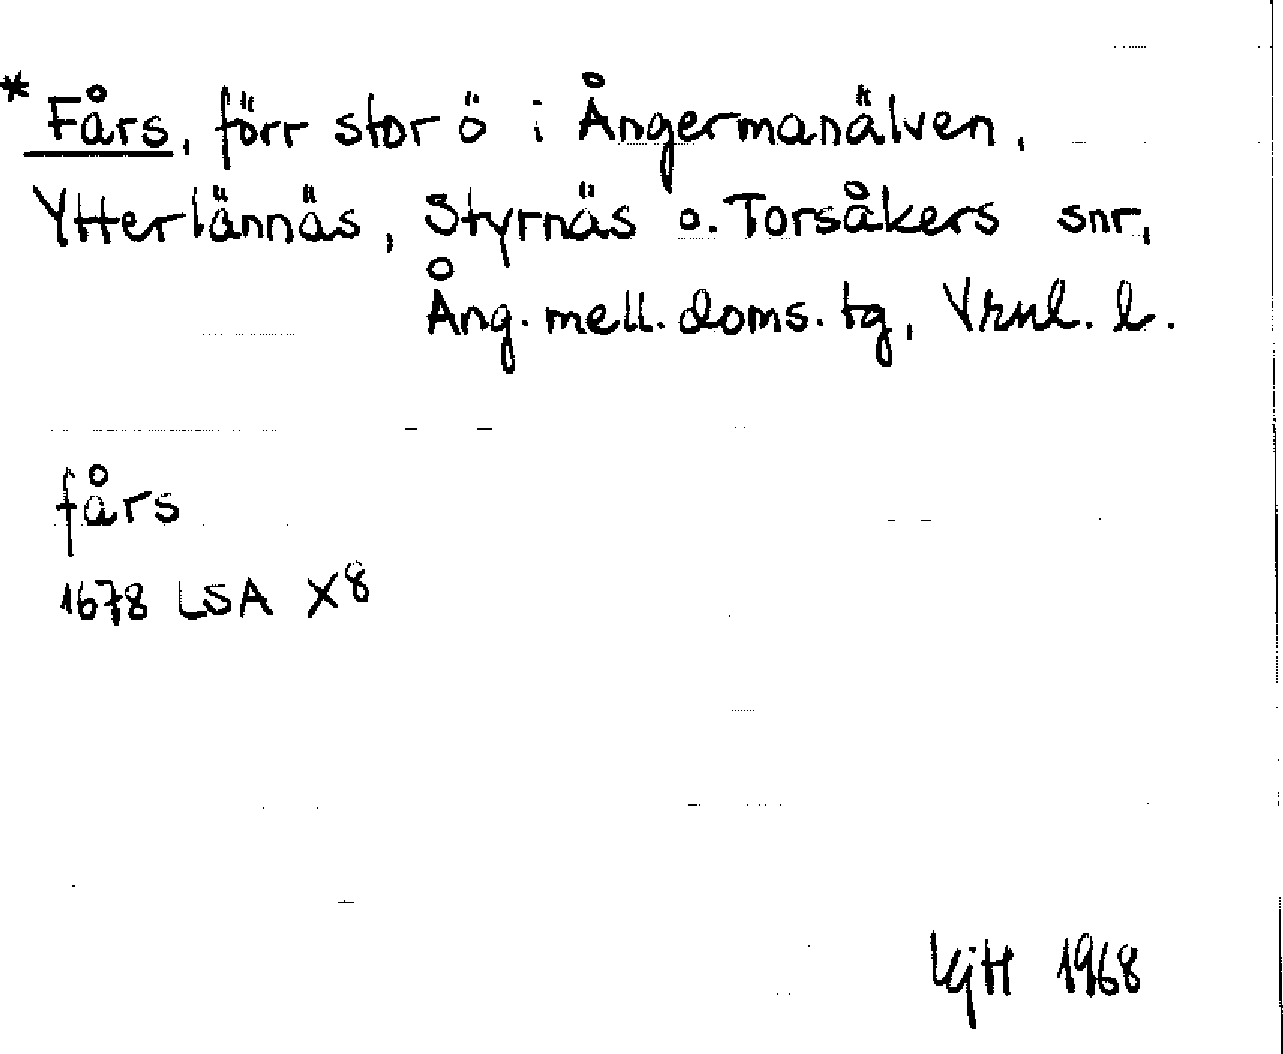 * Fårs, förr stor ö i Ångermanälven,
Ytterlännäs, Styrnäs o. Torsåkers snr,
Ång. mell. doms. tg, Vrnl. l.
fårs
1678 LSA X8
KjH 1968